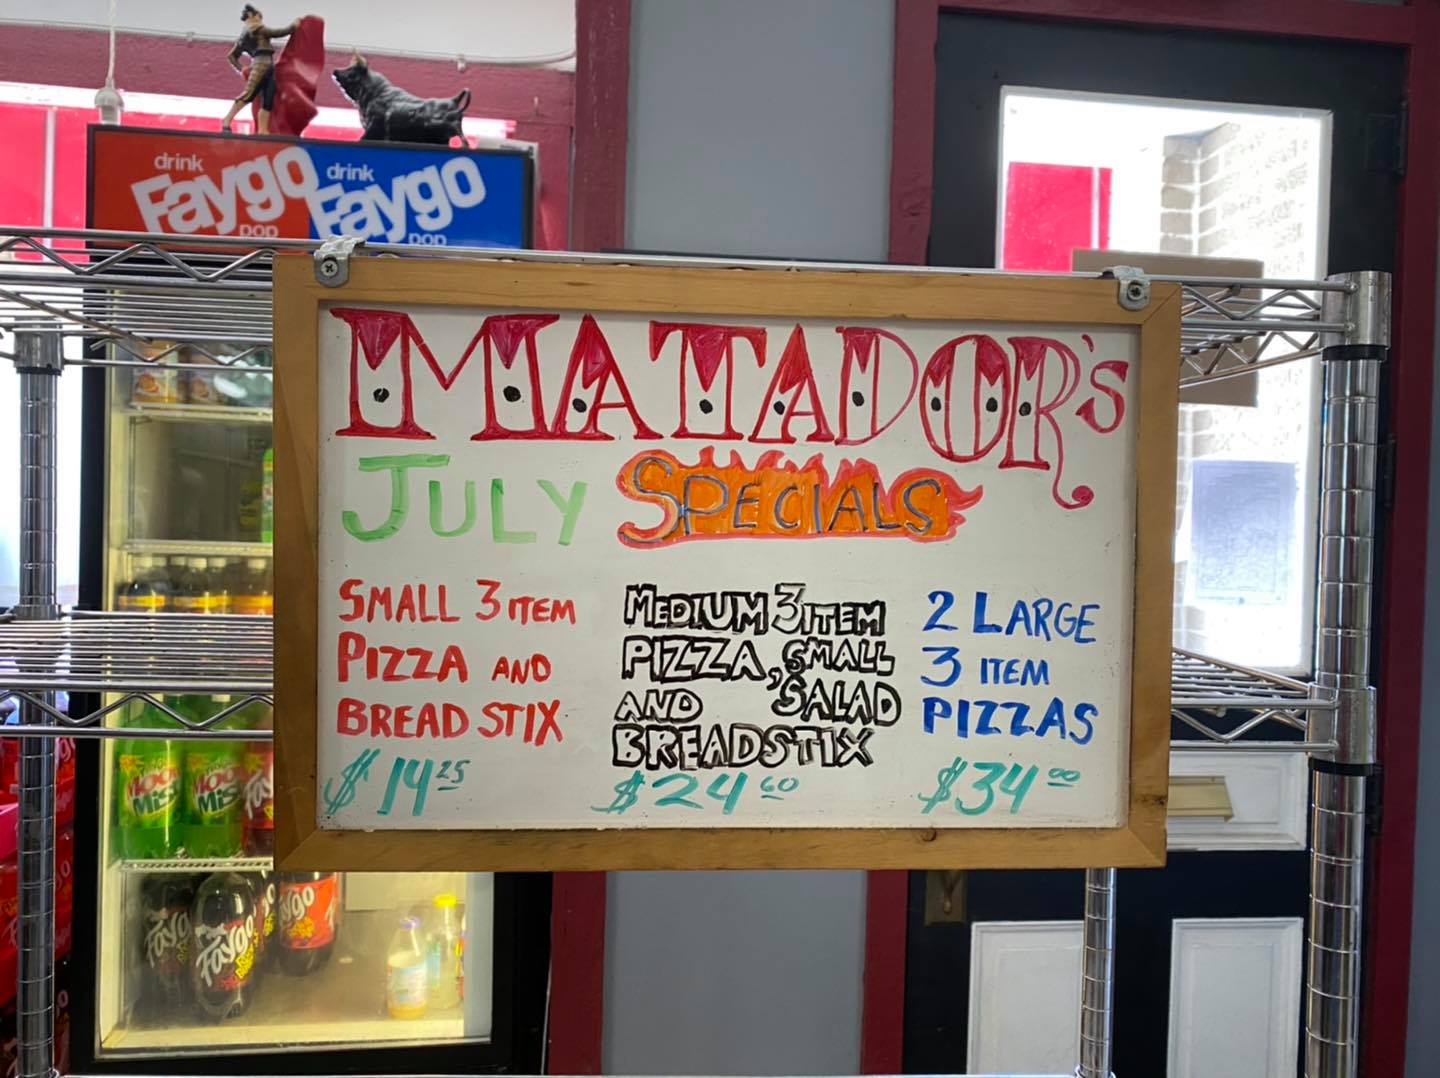 drink
Faygo
pop
drink
Faygo
pop
MATADOR'S
JULY SPECIALS
SMALL 3 ITEM
PIZZA AND
BREAD STIX
$14 25
MEDIUM 3 ITEM
PIZZA, SMALL
AND SALAD
BREADSTIX
$24 60
2 LARGE
3 ITEM
PIZZAS
$34 00
MOON
MIST
MOON
MIST
Faygo
Faygo